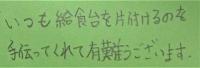 いつも給食台を片付けるのを
手伝ってくれて有難うございます.